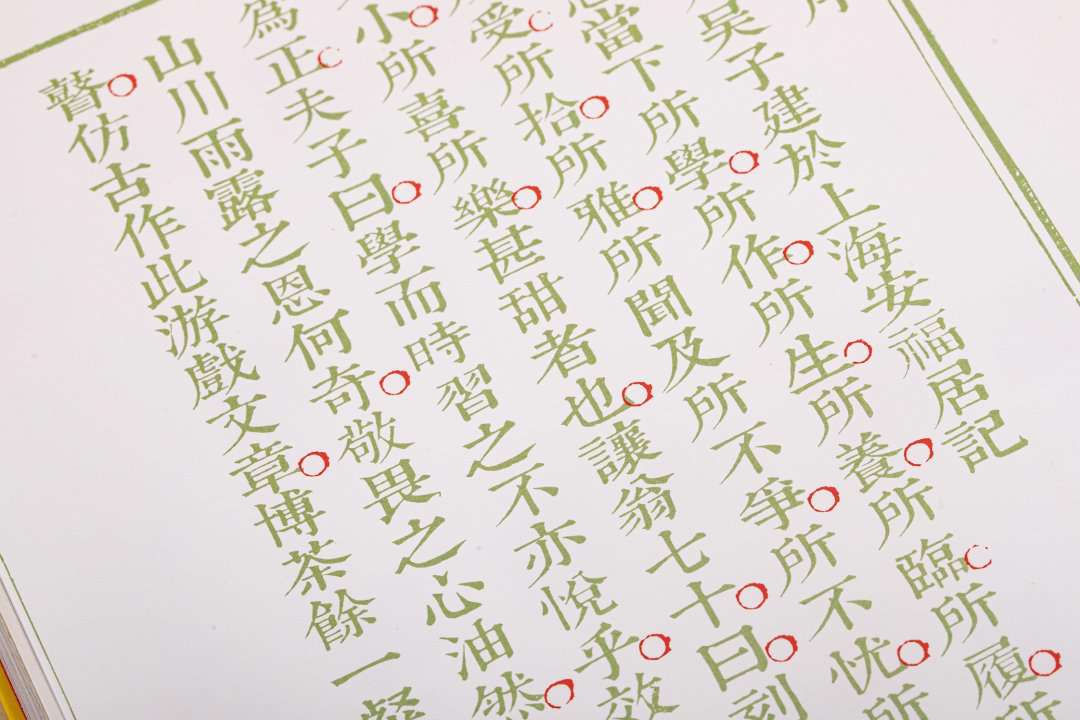 吳子建於上海安福居記
當下所學○所作○所生○所養○所臨○所履○所
受○所拾○所雅○所聞及所不爭○所不忧○所
小○所喜所樂○甚甜者也○讓翁七十○曰○刻
為正○夫子曰○學而時習之不亦悅乎○效
山川雨露之恩何奇○敬畏之心油然○
瞽○仿古作此游戲文章○博茶餘一